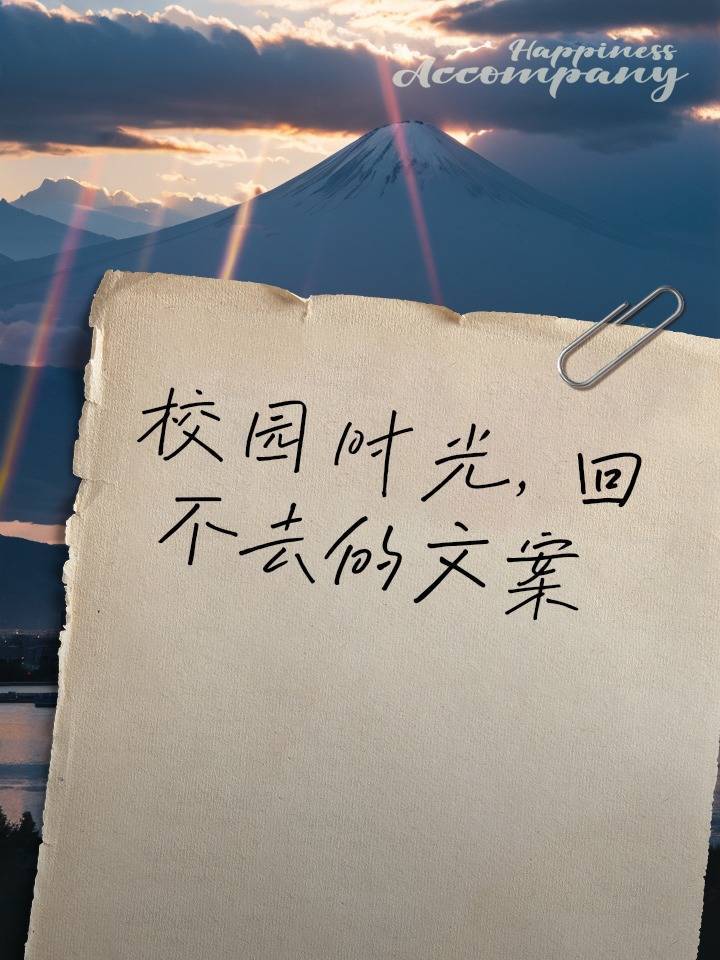 Happiness
Accompany
校园时光，回
不去的文案